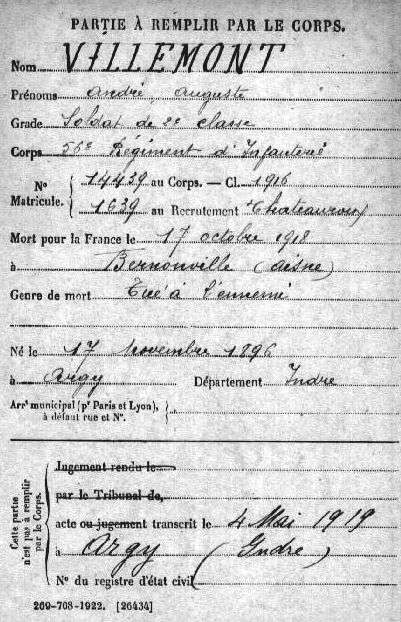 PARTIE À REMPLIR PAR LE CORPS.
Nom VILLEMONT
Prénoms andré, auguste
Grade Soldat de 2e classe
Corps 56e Régiment d'Infanterie
N° Matricule. { 14439 au Corps. — Cl. 1916
1639 au Recrutement Chateauroux
Mort pour la France le 17 octobre 1918
à Bernonville (aisne)
Genre de mort Tué à l'ennemi
Né le 17 novembre 1896
à Argy Département Indre
Arrt municipal (pr Paris et Lyon), à défaut rue et N°. {
Cette partie n'est pas à remplir par le Corps.
Jugement rendu le
par le Tribunal de
acte ou jugement transcrit le 4 Mai 1919
à Argy (Indre)
N° du registre d'état civil
269-708-1922. [26434]